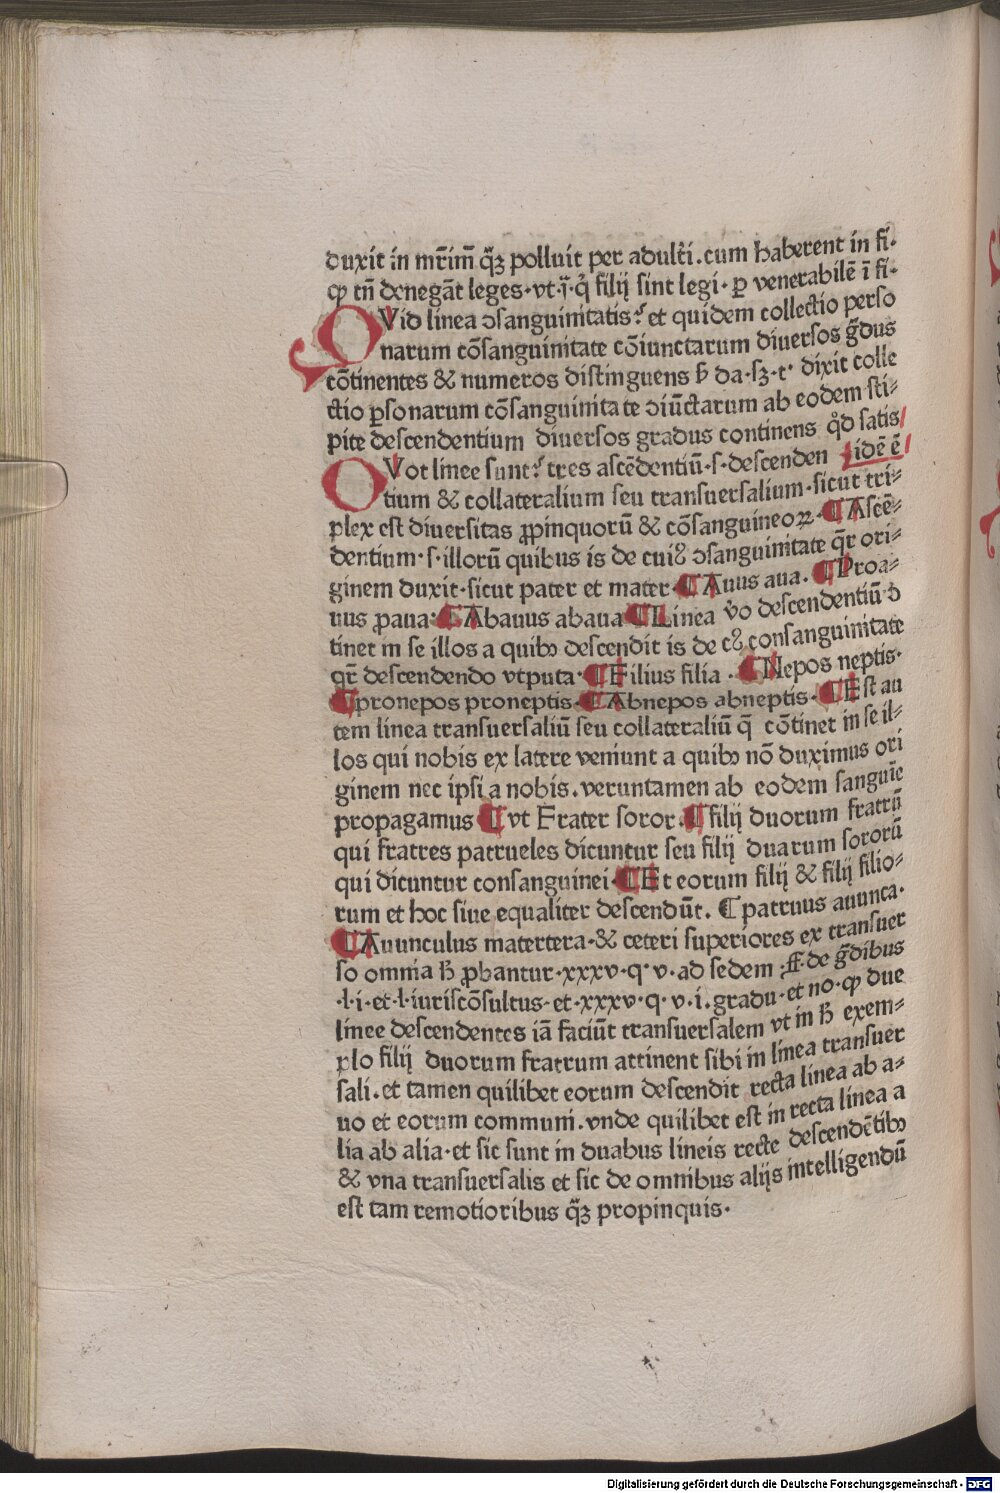 duxit in mr̄im̄ q̄ꝫ polluit per adult̄i. cum haberent in fi·
ꝙ tn̄ denegāt leges·vt·ī·q̇ filij sint legi·ꝑ venerabilē ī fi·
QVid linea ɔsanguinitatis? et quidem collectio perso
narum cōsanguinitate cōiunctarum diuersos gͣdus
cōtinentes & numeros distinguens ẜ da·sꝫ·t· dixit colle
ctio ꝑsonarum cōsanguinitate ɔiūctarum ab eodem sti⸗
pite descendentium diuersos gradus continens qd̓ satis
QVot linee sunt? tres ascēdentiū·s·descenden idē ē
tium & collateralium seu transuersalium·sicut tri⸗
plex est diuersitas ꝓpinquorū & cōsanguineoꝝ·¶Ascē⸗
dentium·s·illorū quibus is de cuiꝰ ɔsanguinitate qr̄ ori⸗
ginem duxit·sicut pater et mater·¶Auus aua.¶Proa⸗
uus ꝓaua:¶Abauus abaua¶Linea v̓o descendentiū ɔ
tinet in se illos a quibꝰ descendit is de cꝰ consanguinitate
qr̄ descendendo vtputa·¶Filius filia.¶Nepos neptis·
¶pronepos proneptis·¶Abnepos abneptis·¶Est au
tem linea transuersaliū seu collateraliū q̄ cōtinet in se il⸗
los qui nobis ex latere veniunt a quibꝰ nō duximus ori
ginem nec ipsi a nobis. veruntamen ab eodem sanguīe
propagamus ¶vt Frater soror.¶filij duorum fratrū
qui fratres patrueles dicuntur seu filij duarum sororū
qui dicuntur consanguinei·¶Et eorum filij & filij filio⸗
rum et hoc siue equaliter descendūt. ¶patruus auunca·
¶Auunculus matertera·& ceteri superiores ex transuer
so omnia ħ ꝓbantur·xxxv·q·v·ad sedem ·ff·de gͣdibus
·l·i·et·l·iuriscōsultus·et·xxxv·q·v·i·gradu·et no·ꝙ due
linee descendentes iā faciūt transuersalem vt in ħ exem⸗
plo filij duorum fratrum attinent sibi in linea transuer
sali.et tamen quilibet eorum descendit recta linea ab a⸗
uo et eorum communi.vnde quilibet est in recta linea a
lia ab alia·et sic sunt in duabus lineis recte descendētibꝰ
& vna transuersalis et sic de omnibus alijs intelligendū
est tam remotioribus q̄ꝫ propinquis·
Digitalisierung gefördert durch die Deutsche Forschungsgemeinschaft - DFG